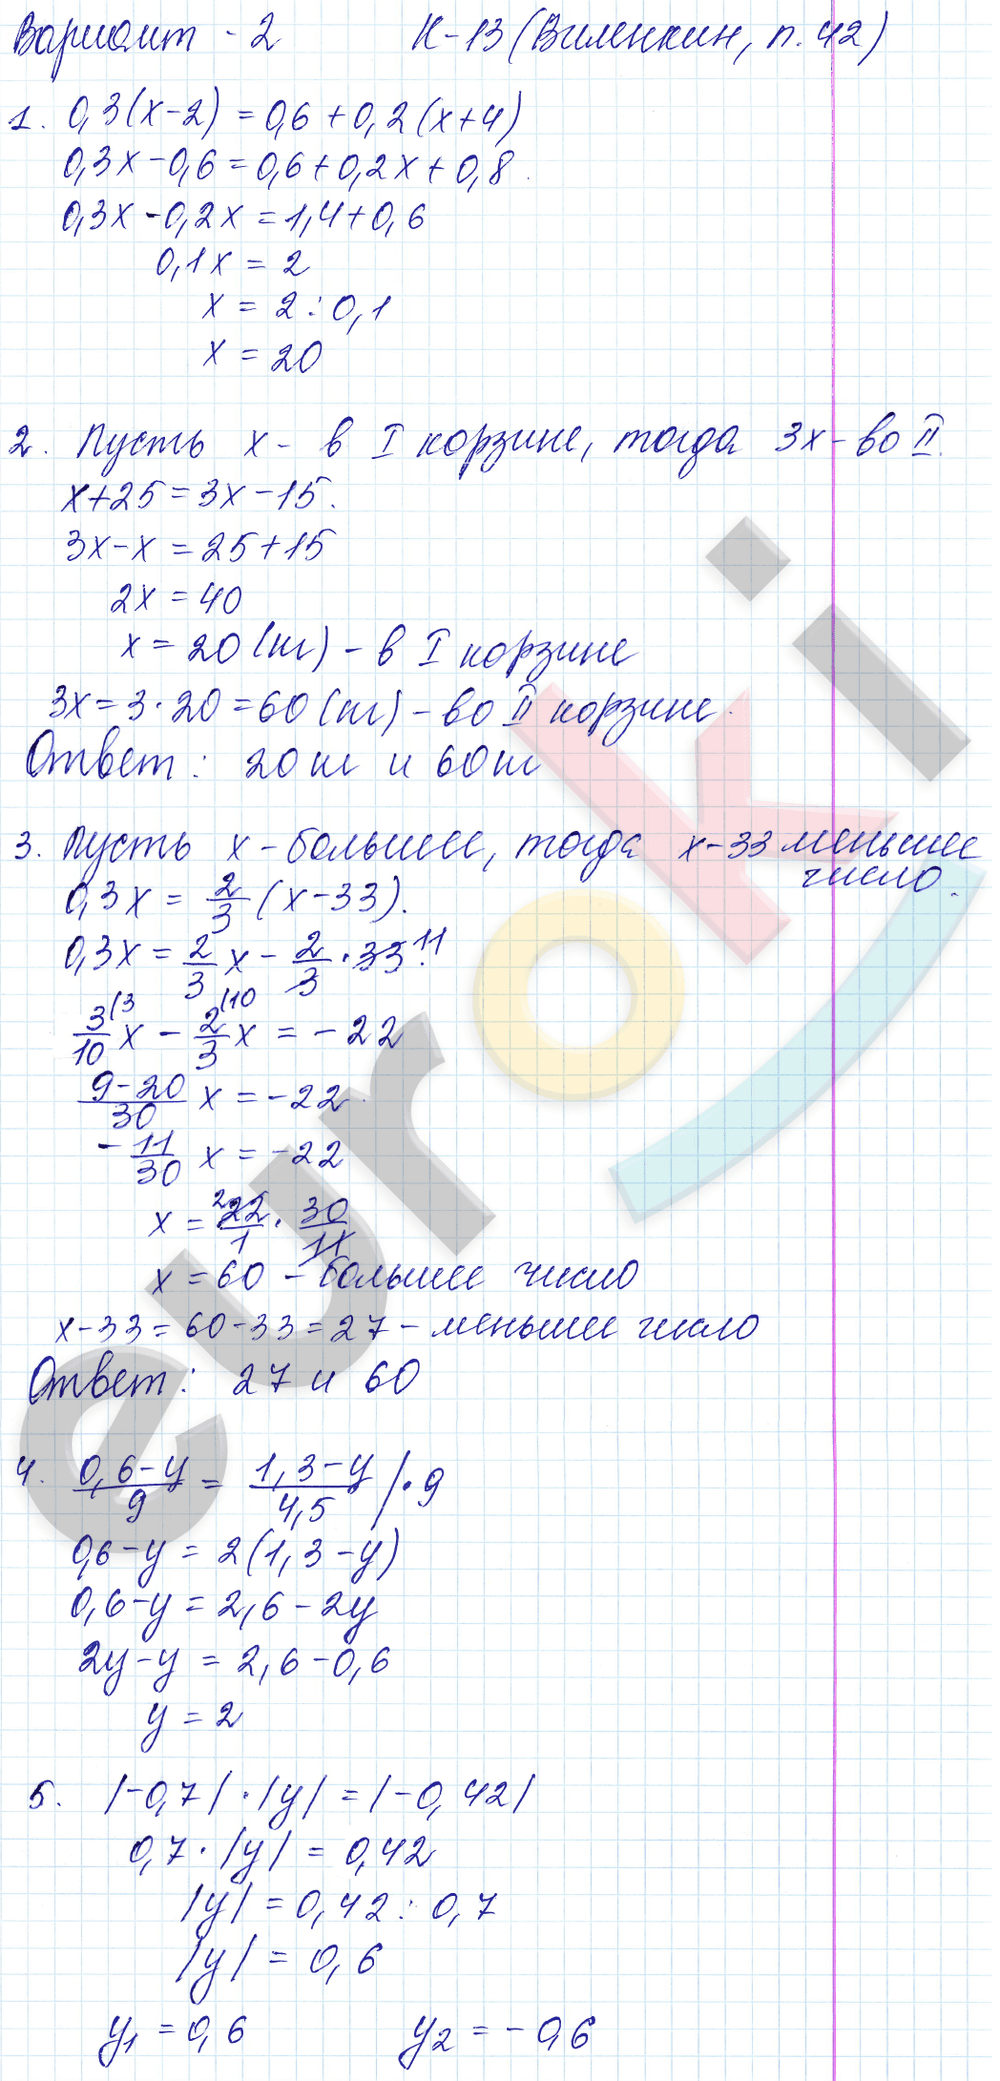 Вариант - 2 К-13 (Виленкин, п. 42)
1. 0,3(x-2) = 0,6 + 0,2(x+4)
0,3x - 0,6 = 0,6 + 0,2x + 0,8.
0,3x - 0,2x = 1,4 + 0,6
0,1x = 2
x = 2 : 0,1
x = 20
2. Пусть x - в I корзине, тогда 3x - во II.
x+25 = 3x - 15.
3x - x = 25 + 15
2x = 40
x = 20 (кг) - в I корзине
3x = 3 · 20 = 60 (кг) - во II корзине.
Ответ: 20 кг и 60 кг
3. Пусть x - большее, тогда x-33 меньшее
число.
0,3x = 2/3 (x-33).
0,3x = 2/3 x - 2/3 · 33 11.
3/10 (3 x - 2/3 (10 x = -22
9-20/30 x = -22
-11/30 x = -22
x = 2 22/1 · 30/11
x = 60 - большее число
x-33 = 60-33 = 27 - меньшее число
Ответ: 27 и 60
4. 0,6-y/9 = 1,3-y/4,5 | · 9
0,6 - y = 2(1,3 - y)
0,6 - y = 2,6 - 2y
2y - y = 2,6 - 0,6
y = 2
5. |-0,7| · |y| = |-0,42|
0,7 · |y| = 0,42
|y| = 0,42 : 0,7
|y| = 0,6
y1 = 0,6 y2 = -0,6
euroki